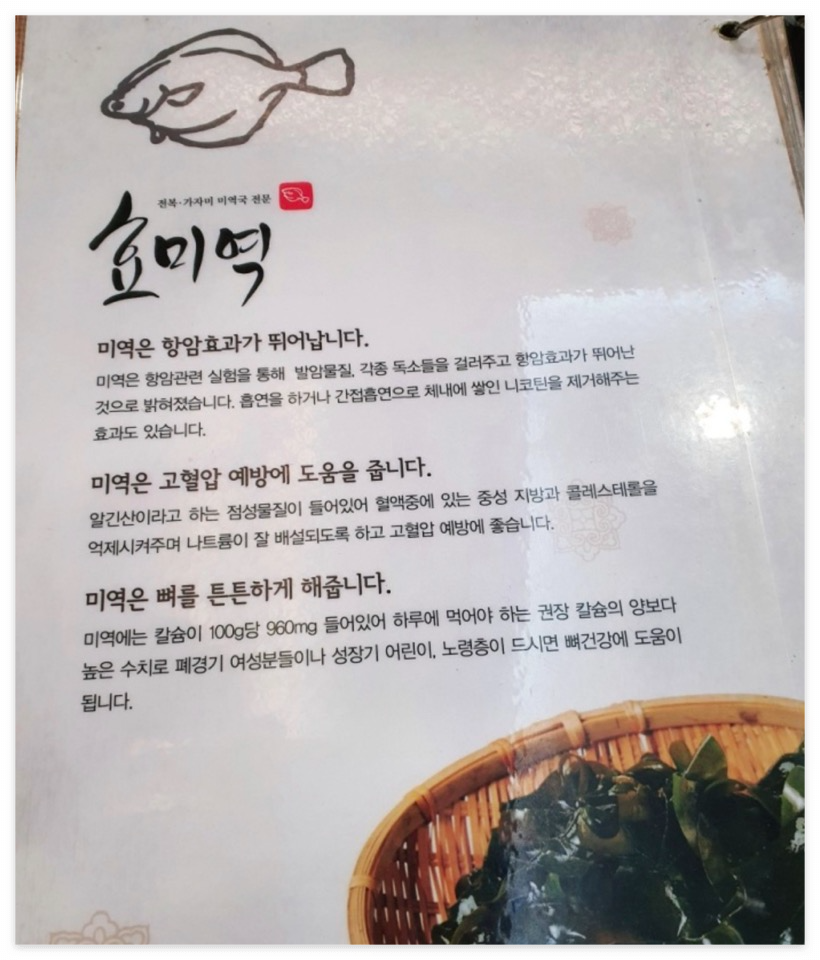 전복·가자미 미역국 전문
효미역
미역은 항암효과가 뛰어납니다.
미역은 항암관련 실험을 통해 발암물질, 각종 독소들을 걸러주고 항암효과가 뛰어난
것으로 밝혀졌습니다. 흡연을 하거나 간접흡연으로 체내에 쌓인 니코틴을 제거해주는
효과도 있습니다.
미역은 고혈압 예방에 도움을 줍니다.
알긴산이라고 하는 점성물질이 들어있어 혈액중에 있는 중성 지방과 콜레스테롤을
억제시켜주며 나트륨이 잘 배설되도록 하고 고혈압 예방에 좋습니다.
미역은 뼈를 튼튼하게 해줍니다.
미역에는 칼슘이 100g당 960mg 들어있어 하루에 먹어야 하는 권장 칼슘의 양보다
높은 수치로 폐경기 여성분들이나 성장기 어린이, 노령층이 드시면 뼈건강에 도움이
됩니다.